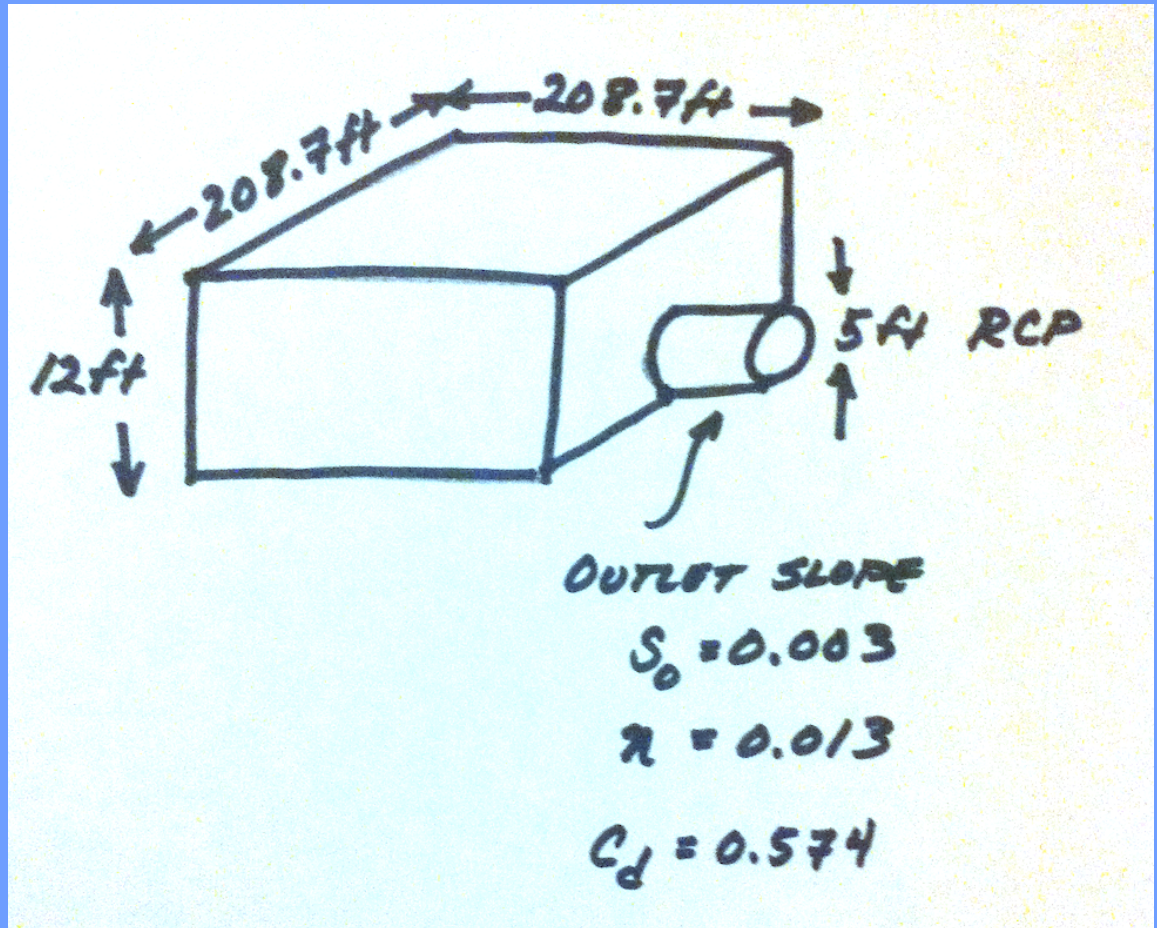 208.7ft
208.7ft
12ft
5ft RCP
OUTLET SLOPE
S₀ = 0.003
n = 0.013
C_d = 0.574